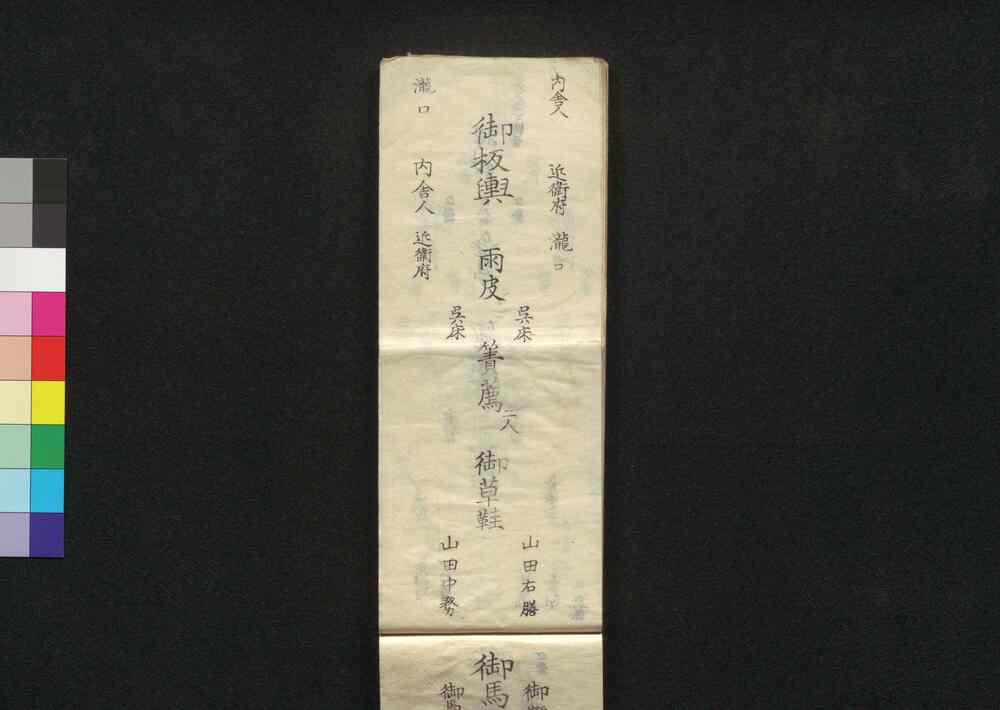 内舎人 近衛府 瀧口
呉床
二人
山田右膳
御板輿 雨皮 箐薦 御草鞋
呉床
山田中務
瀧口 内舎人 近衛府
御
御馬
御馬